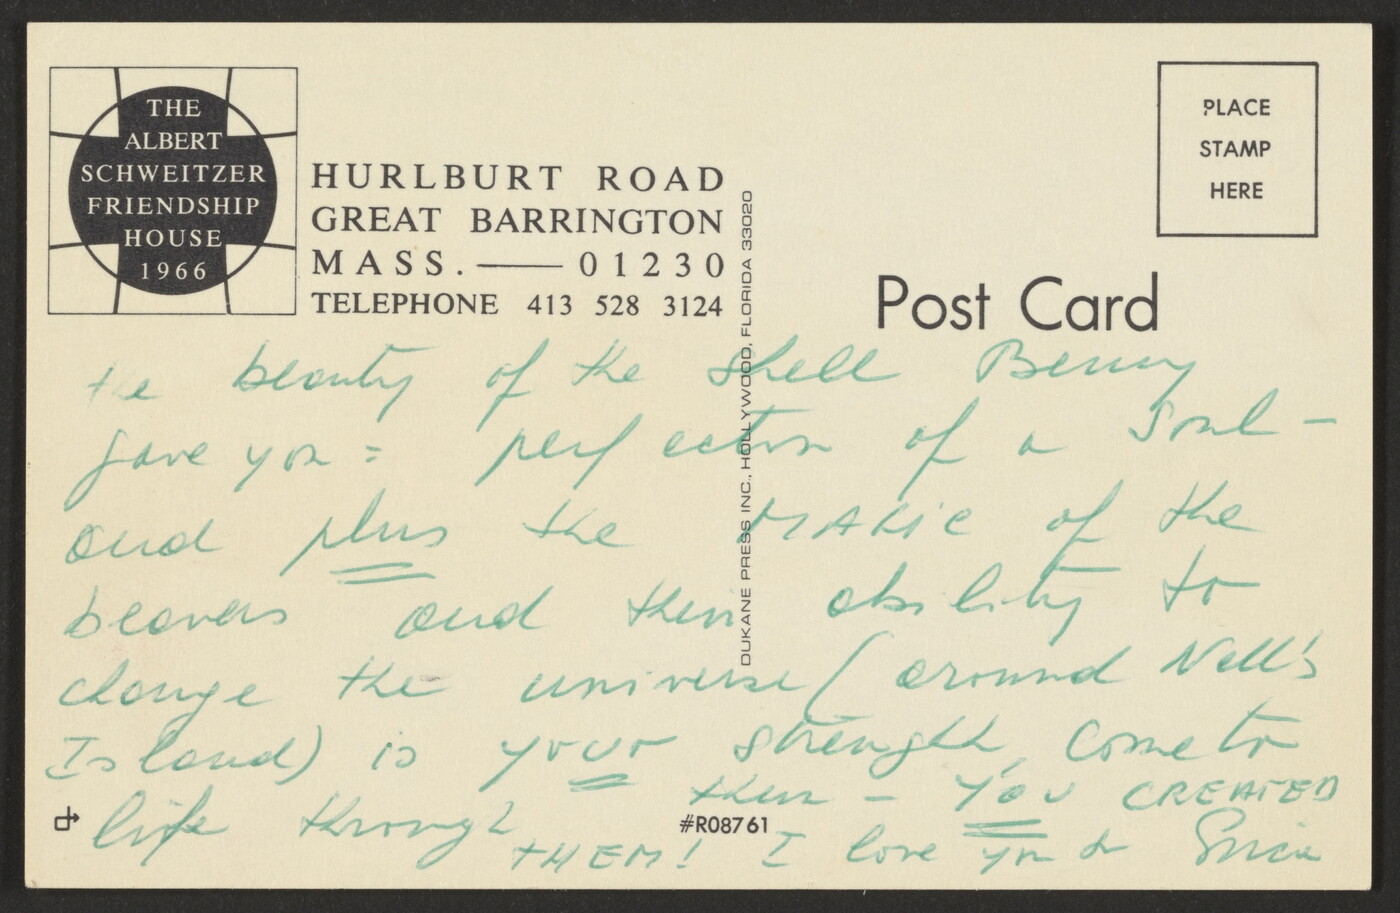 THE
ALBERT
SCHWEITZER
FRIENDSHIP
HOUSE
1966
HURLBURT ROAD
GREAT BARRINGTON
MASS. — 01230
TELEPHONE 413 528 3124
PLACE
STAMP
HERE
Post Card
DUKANE PRESS INC., HOLLYWOOD, FLORIDA 33020
the beauty of the shell Benny
gave you = perfection of a soul –
and plus the MAGic of the
beavers and their ability to
change the universe (around Nell's
Island) is your strength, come to
life through them – YOU CREATED
THEM! I love you
#R08761